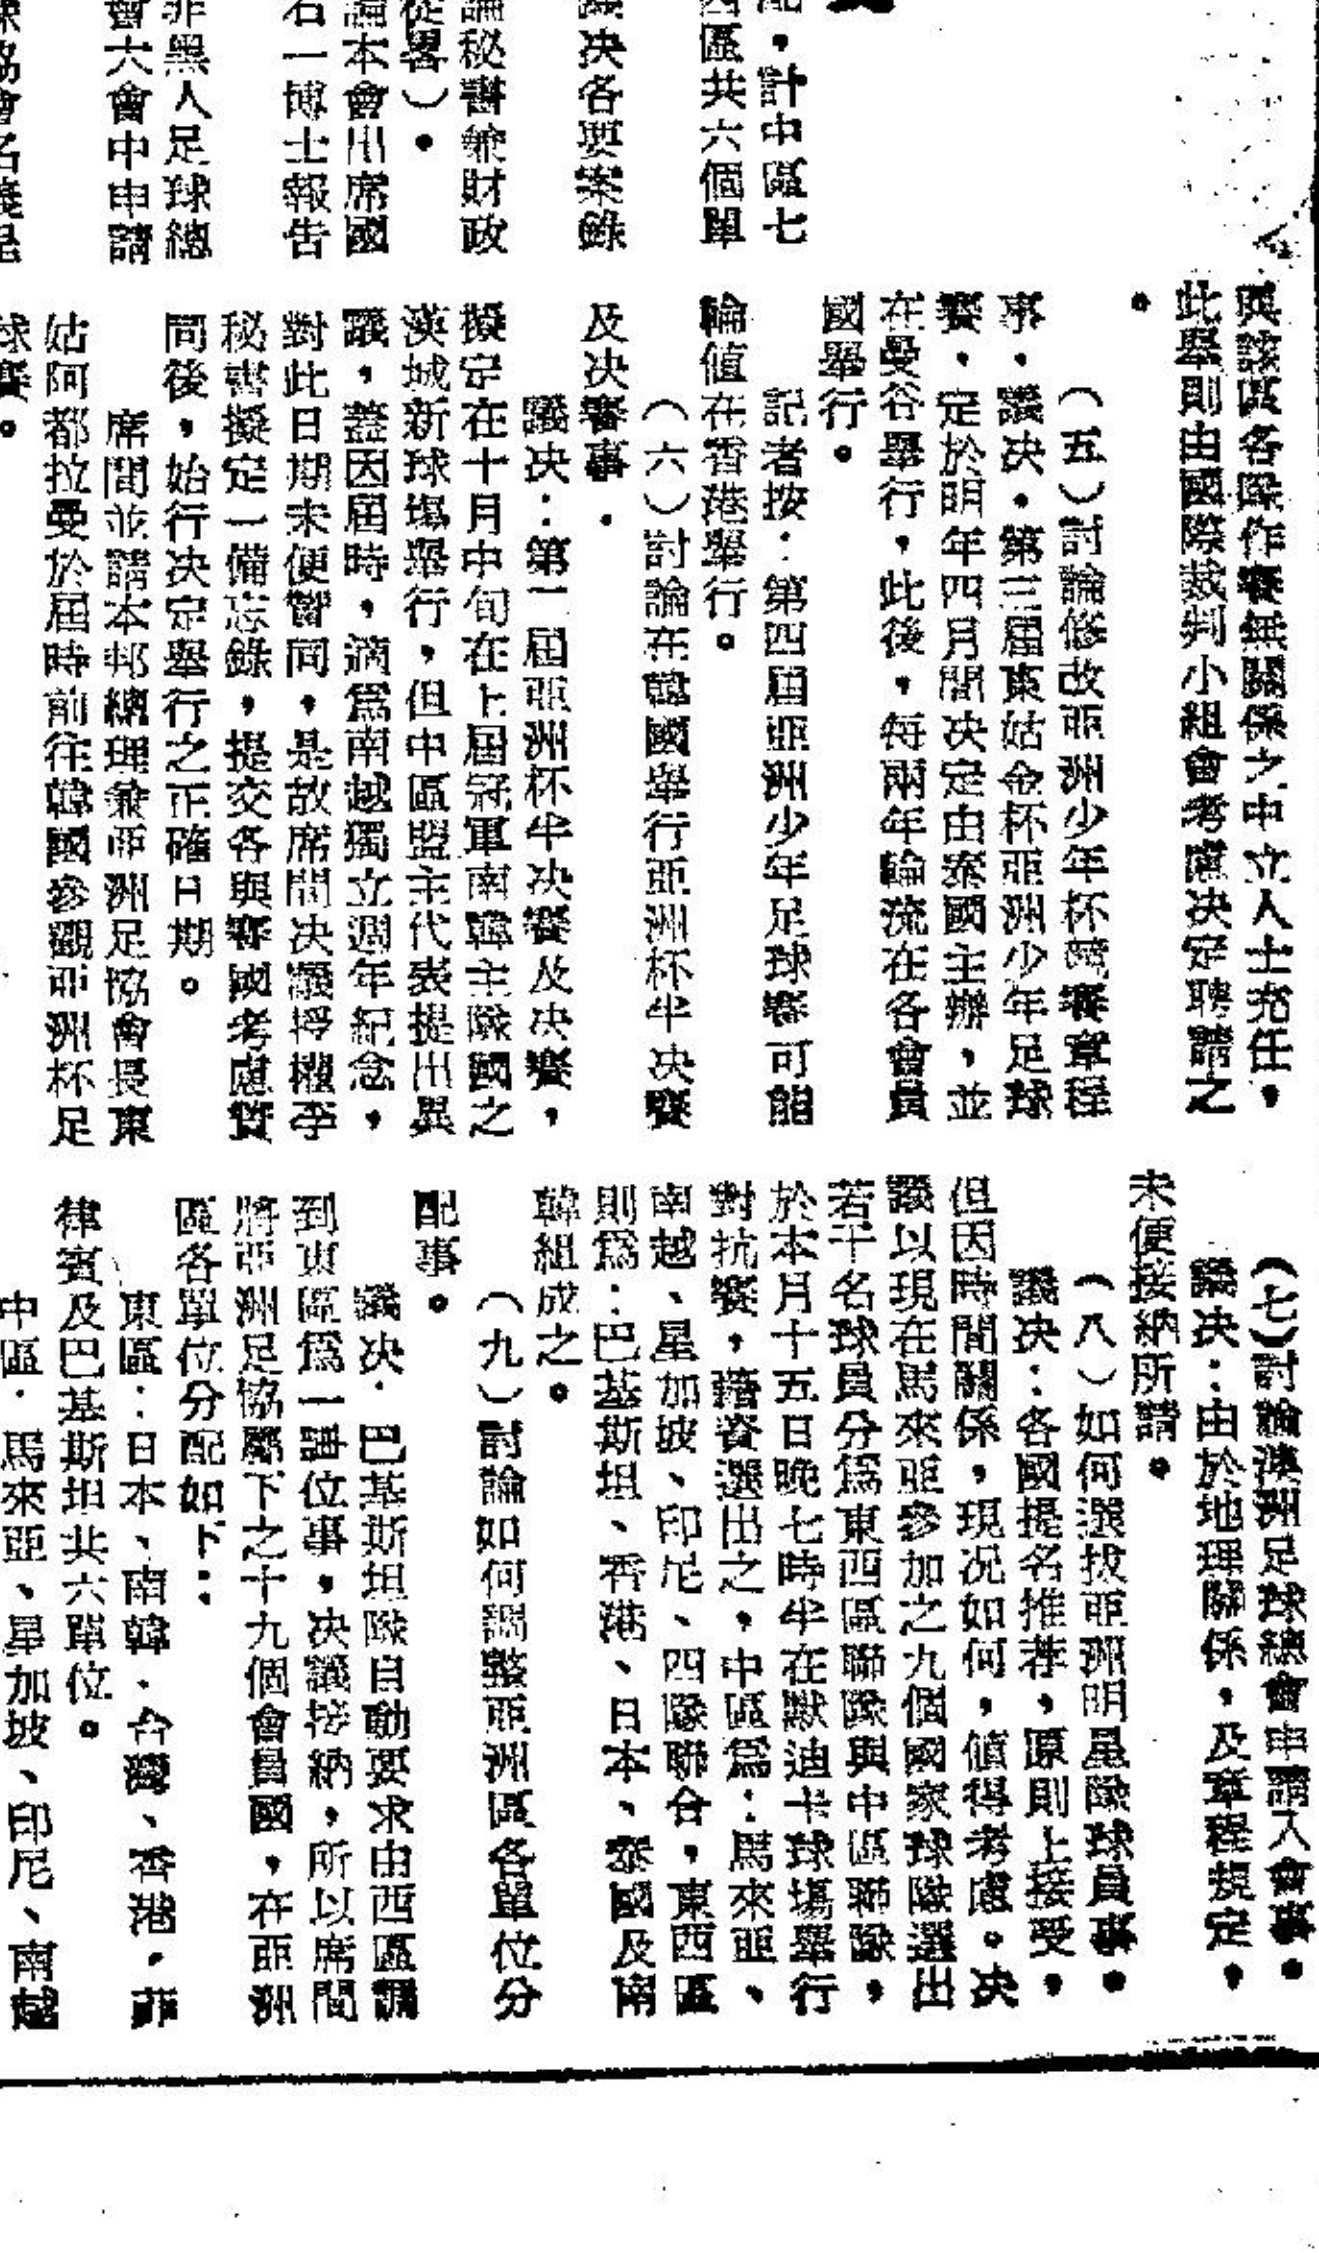 配，計中區七
西區共六個單
議决各要案錄
論秘書兼財政
從畧）。
論本會出席國
石一博士報告
非黑人足球總
會大會中申請
與該區各隊作賽無關係之中立人士充任，
此舉則由國際裁判小組會考慮决定聘請之
。
（五）討論修改亞洲少年杯賽章程
事．議决．第三屆東姑金杯亞洲少年足球
賽，定於明年四月間决定由泰國主辦，並
在曼谷舉行，此後，每兩年輪流在各會員
國舉行。
記者按．第四屆亞洲少年足球賽可能
輪值在香港舉行。
（六）討論在韓國舉行亞洲杯半决賽
及决賽事．
議决：第一屆亞洲杯半决賽及决賽，
擬定在十月中旬在上屆冠軍南韓主隊國之
漢城新球塲舉行，但中區盟主代表提出異
議，蓋因屆時，適爲南越獨立週年紀念，
對此日期未便贊同，是故席間决議授權李
秘書擬定一備忘錄，提交各與賽國考慮贊
同後，始行决定舉行之正確日期。
席間並請本邦總理兼亞洲足協會長東
姑阿都拉曼於屆時前往韓國參觀亞洲杯足
球賽。
（七）討論澳洲足球總會申請入會事．
議决：由於地理關係，及章程規定，
未便接納所請。
（八）如何選拔亞洲明星隊球員事．
議决：各國提名推荐，原則上接受，
但因時間關係，現况如何，値得考慮。决
議以現在馬來亞參加之九個國家球隊選出
若干名球員分爲東西區聯隊與中區聯隊，
於本月十五日晚七時半在默迪卡球塲舉行
對抗賽，藉資選出之，中區爲：馬來亞、
南越、星加坡、印尼、四隊聯合，東西區
則爲：巴基斯坦、香港、日本、泰國及南
韓組成之。
（九）討論如何調整亞洲區各單位分
配事。
議决．巴基斯坦隊自動要求由西區調
到東區爲一單位事，决議接納，所以席間
將亞洲足協屬下之十九個會員國，在亞洲
區各單位分配如下：
東區：日本、南韓、台灣、香港，菲
律賓及巴基斯坦共六單位。
中區．馬來亞、星加坡、印尼、南越